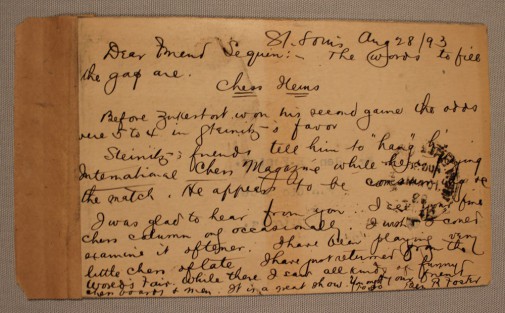 St. Louis Aug 28/93
Dear Friend Seguin:- The words to fill
the gap are.
Chess Items
Before Zukertort won his second game the odds
were 5 to 4 in Steinitz's favor
Steinitz's friends tell him to "hang" his
International Chess Magazine while he is playing
the match. He appears to be
I was glad to hear from you. I see your fine
chess column occasionally. I wish I could
examine it oftener. I have been playing very
little chess of late. I have just returned from the
World's Fair, while there I saw all kinds of funny
chess boards & men. It is a great show. Your friend
Ben R Foster